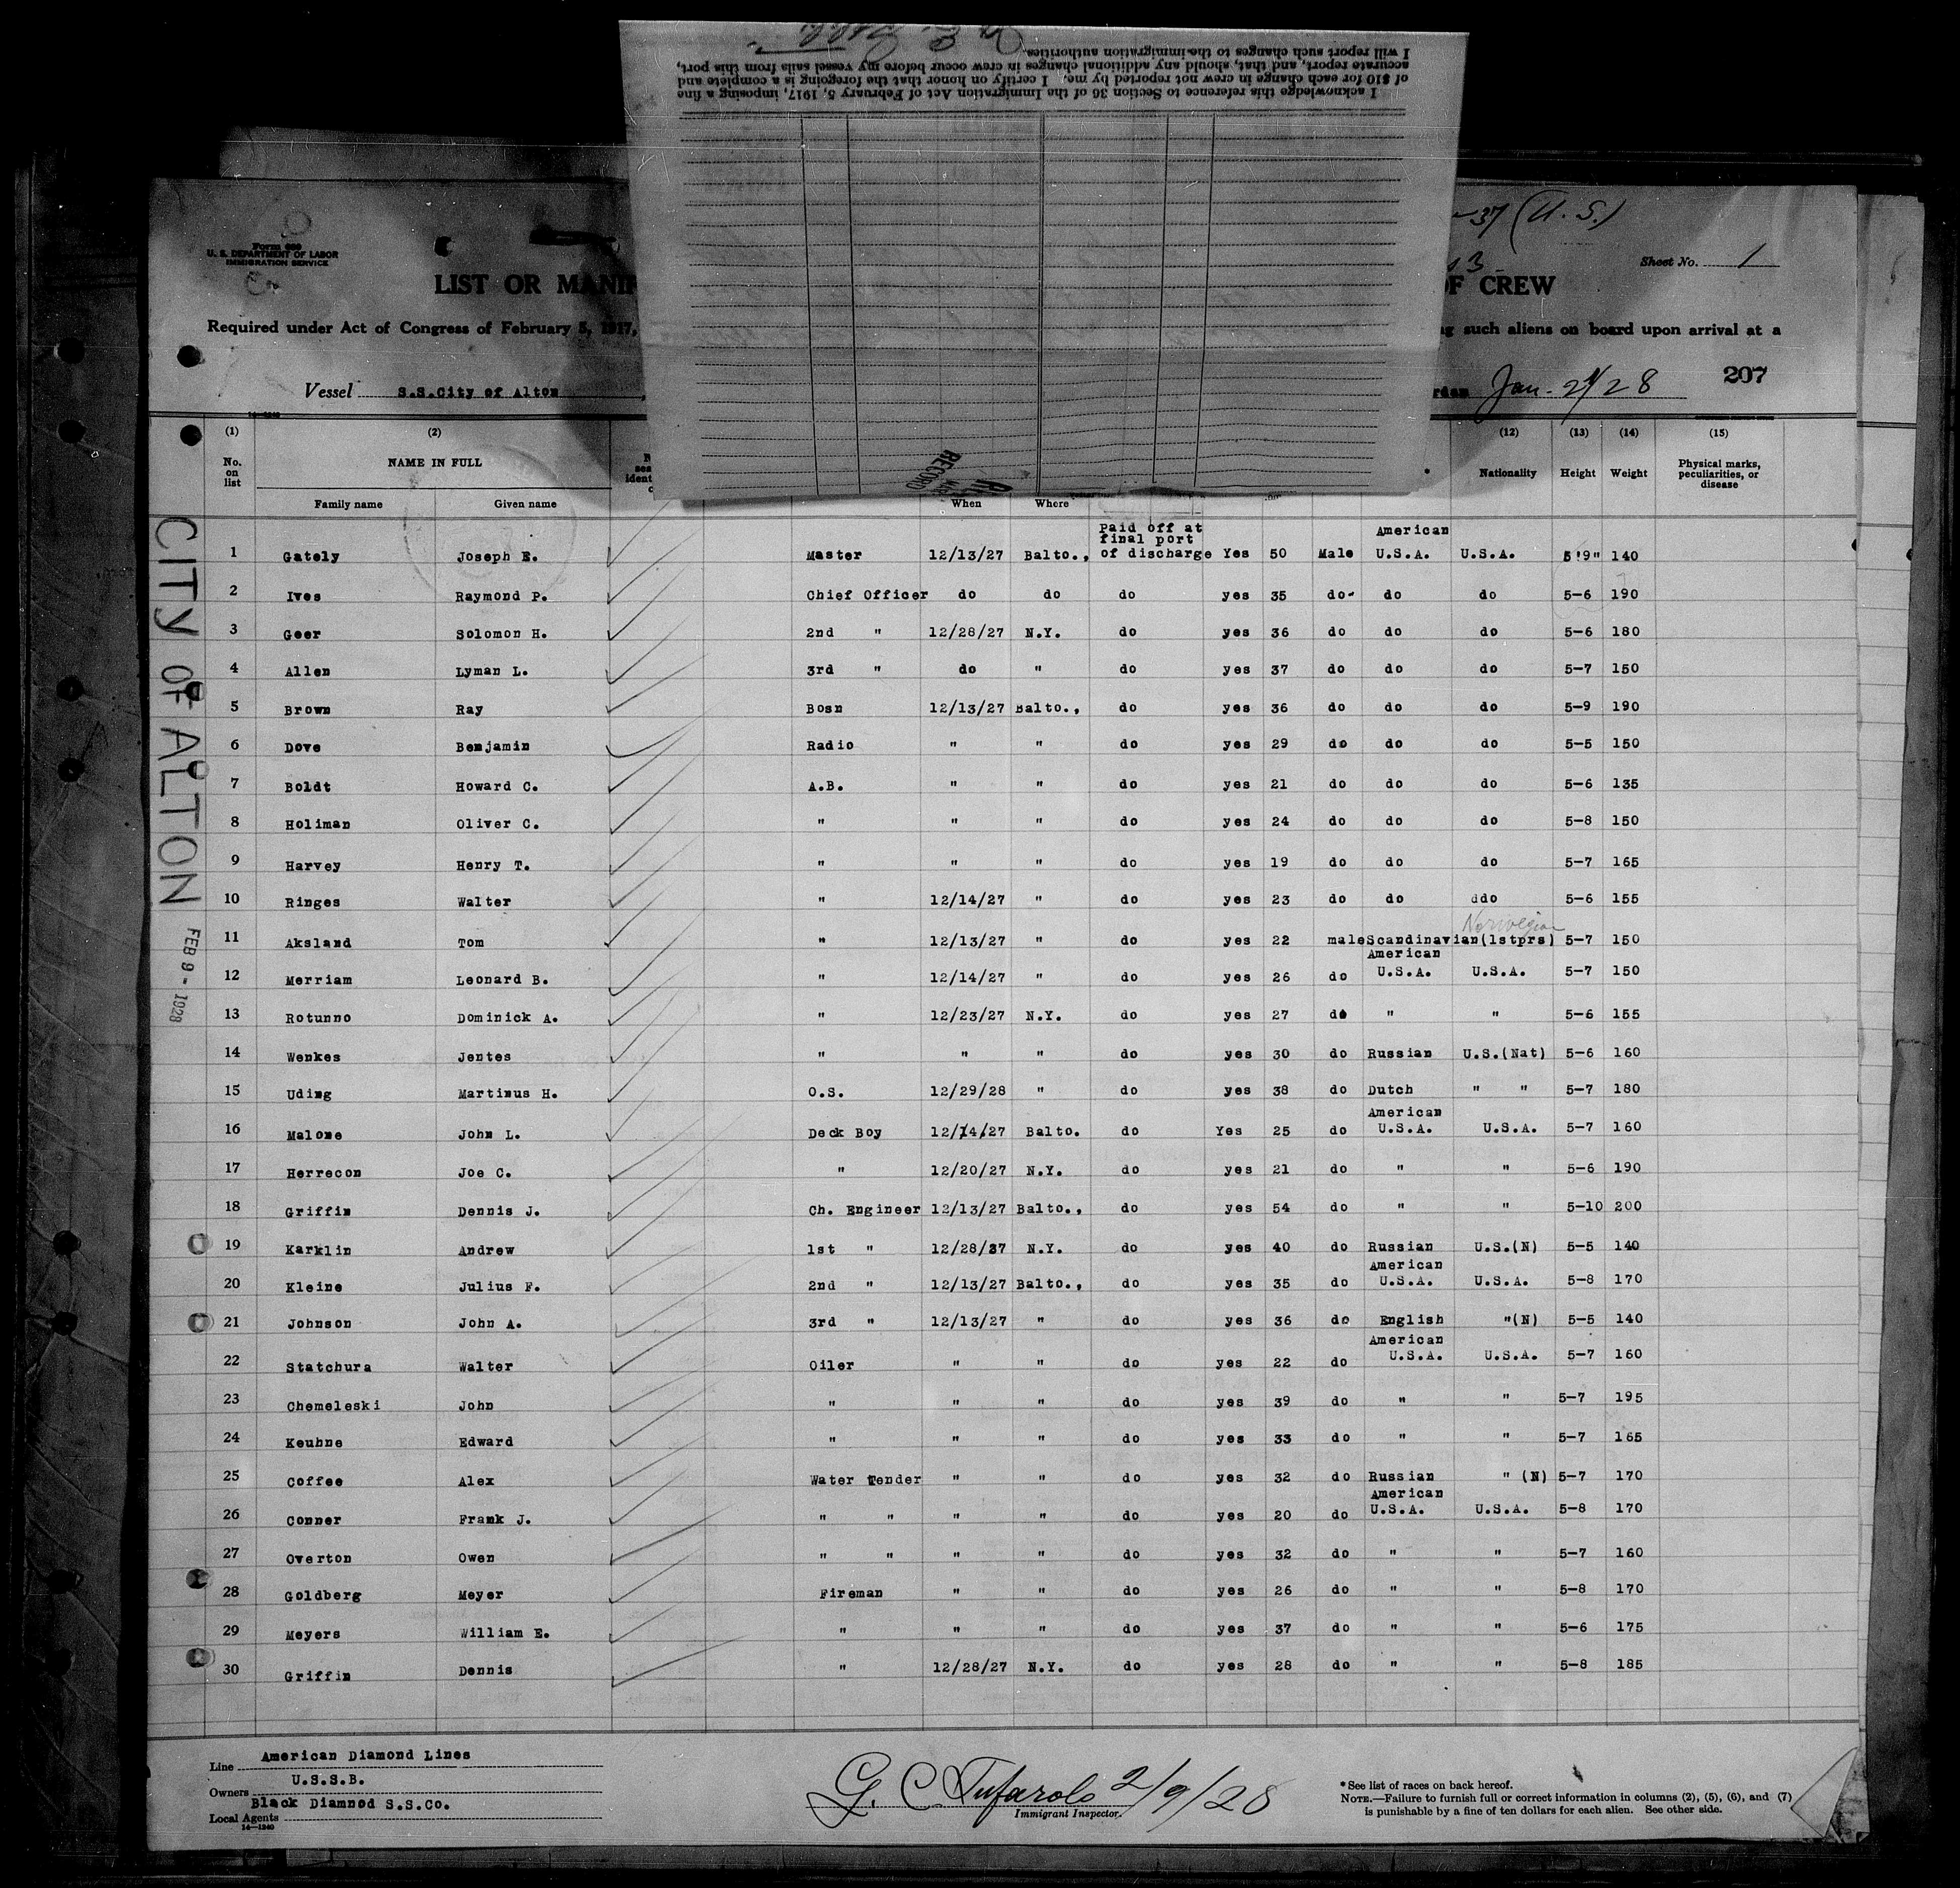 I acknowledge this reference to Section 36 of the Immigration Act of February 5, 1917, imposing a fine
of $10 for each change in crew not reported by me. I certify on honor that the foregoing is a complete and
accurate report, and that, should any additional changes in crew occur before my vessel sails from this port,
I will report such changes to the immigration authorities.
RECORD
-37 (U. S.)
Form 689
U. S. DEPARTMENT OF LABOR
IMMIGRATION SERVICE
Sheet No. 1
LIST OR MANIF OF CREW
Required under Act of Congress of February 5, 1917, such aliens on board upon arrival at a
Vessel S.S.City of Alton Jan. 24/28 207
14-1240
(1) (2) (12) (13) (14) (15)
No. on list NAME IN FULL Nationality Height Weight Physical marks, peculiarities, or disease
Family name Given name When Where
CITY OF ALTON
FEB 9 - 1928
1 Gately Joseph E. Master 12/13/27 Balto., Paid off at final port of discharge Yes 50 Male American U.S.A. U.S.A. 5'9" 140
2 Ives Raymond P. Chief Officer do do do yes 35 do do do 5-6 190
3 Geer Solomon H. 2nd " 12/28/27 N.Y. do yes 36 do do do 5-6 180
4 Allen Lyman L. 3rd " do " do yes 37 do do do 5-7 150
5 Brown Ray Bosn 12/13/27 Balto., do yes 36 do do do 5-9 190
6 Dove Benjamin Radio " " do yes 29 do do do 5-5 150
7 Boldt Howard C. A.B. " " do yes 21 do do do 5-6 135
8 Holiman Oliver C. " " " do yes 24 do do do 5-8 150
9 Harvey Henry T. " " " do yes 19 do do do 5-7 165
10 Ringes Walter " 12/14/27 " do yes 23 do do ddo 5-6 155
Norwegian
11 Aksland Tom " 12/13/27 " do yes 22 male Scandinavian(1stprs) 5-7 150
12 Merriam Leonard B. " 12/14/27 " do yes 26 do American U.S.A. U.S.A. 5-7 150
13 Rotunno Dominick A. " 12/23/27 N.Y. do yes 27 do " " 5-6 155
14 Wenkes Jentes " " " do yes 30 do Russian U.S.(Nat) 5-6 160
15 Uding Martinus H. O.S. 12/29/28 " do yes 38 do Dutch " " 5-7 180
16 Malone John L. Deck Boy 12/14/27 Balto. do Yes 25 do American U.S.A. U.S.A. 5-7 160
17 Herrecon Joe C. " 12/20/27 N.Y. do yes 21 do " " 5-6 190
18 Griffin Dennis J. Ch. Engineer 12/13/27 Balto., do yes 54 do " " 5-10 200
19 Karklin Andrew 1st " 12/28/27 N.Y. do yes 40 do Russian U.S.(N) 5-5 140
20 Kleine Julius F. 2nd " 12/13/27 Balto., do yes 35 do American U.S.A. U.S.A. 5-8 170
21 Johnson John A. 3rd " 12/13/27 " do yes 36 do English "(N) 5-5 140
22 Statchura Walter Oiler " " do yes 22 do American U.S.A. U.S.A. 5-7 160
23 Chemeleski John " " " do yes 39 do " " 5-7 195
24 Keuhne Edward " " " do yes 33 do " " 5-7 165
25 Coffee Alex Water Tender " " do yes 32 do Russian " (N) 5-7 170
26 Conner Frank J. " " " " do yes 20 do American U.S.A. U.S.A. 5-8 170
27 Overton Owen " " " " do yes 32 do " " 5-7 160
28 Goldberg Meyer Fireman " " do yes 26 do " " 5-8 170
29 Meyers William E. " " " do yes 37 do " " 5-6 175
30 Griffin Dennis " 12/28/27 N.Y. do yes 28 do " " 5-8 185
Line American Diamond Lines
Owners U.S.S.B.
Local Agents Black Diamnod S.S.Co.
14-1240
G. C. Tufarolo 2/9/28
Immigrant Inspector.
*See list of races on back hereof.
NOTE.—Failure to furnish full or correct information in columns (2), (5), (6), and (7)
is punishable by a fine of ten dollars for each alien. See other side.